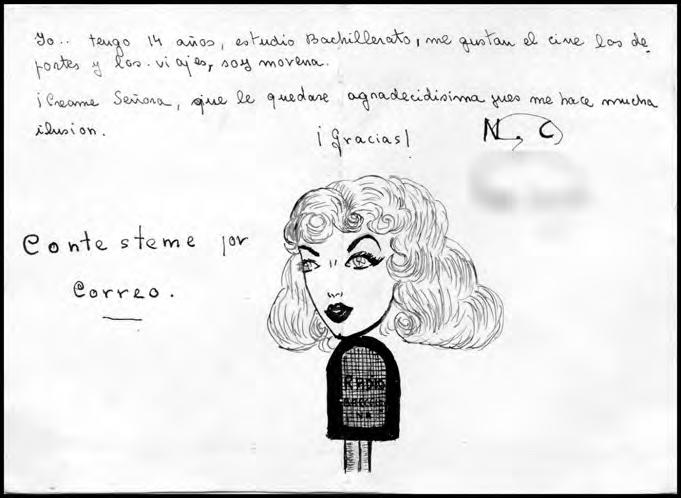 Yo.. tengo 14 años, estudio Bachillerato, me gustan el cine los de
portes y los. viajes, soy morena.
¡Creame Señora, que le quedase agradecidisima pues me hace mucha
ilusion.
¡Gracias!
N. C
Contesteme por
Correo.
Radio